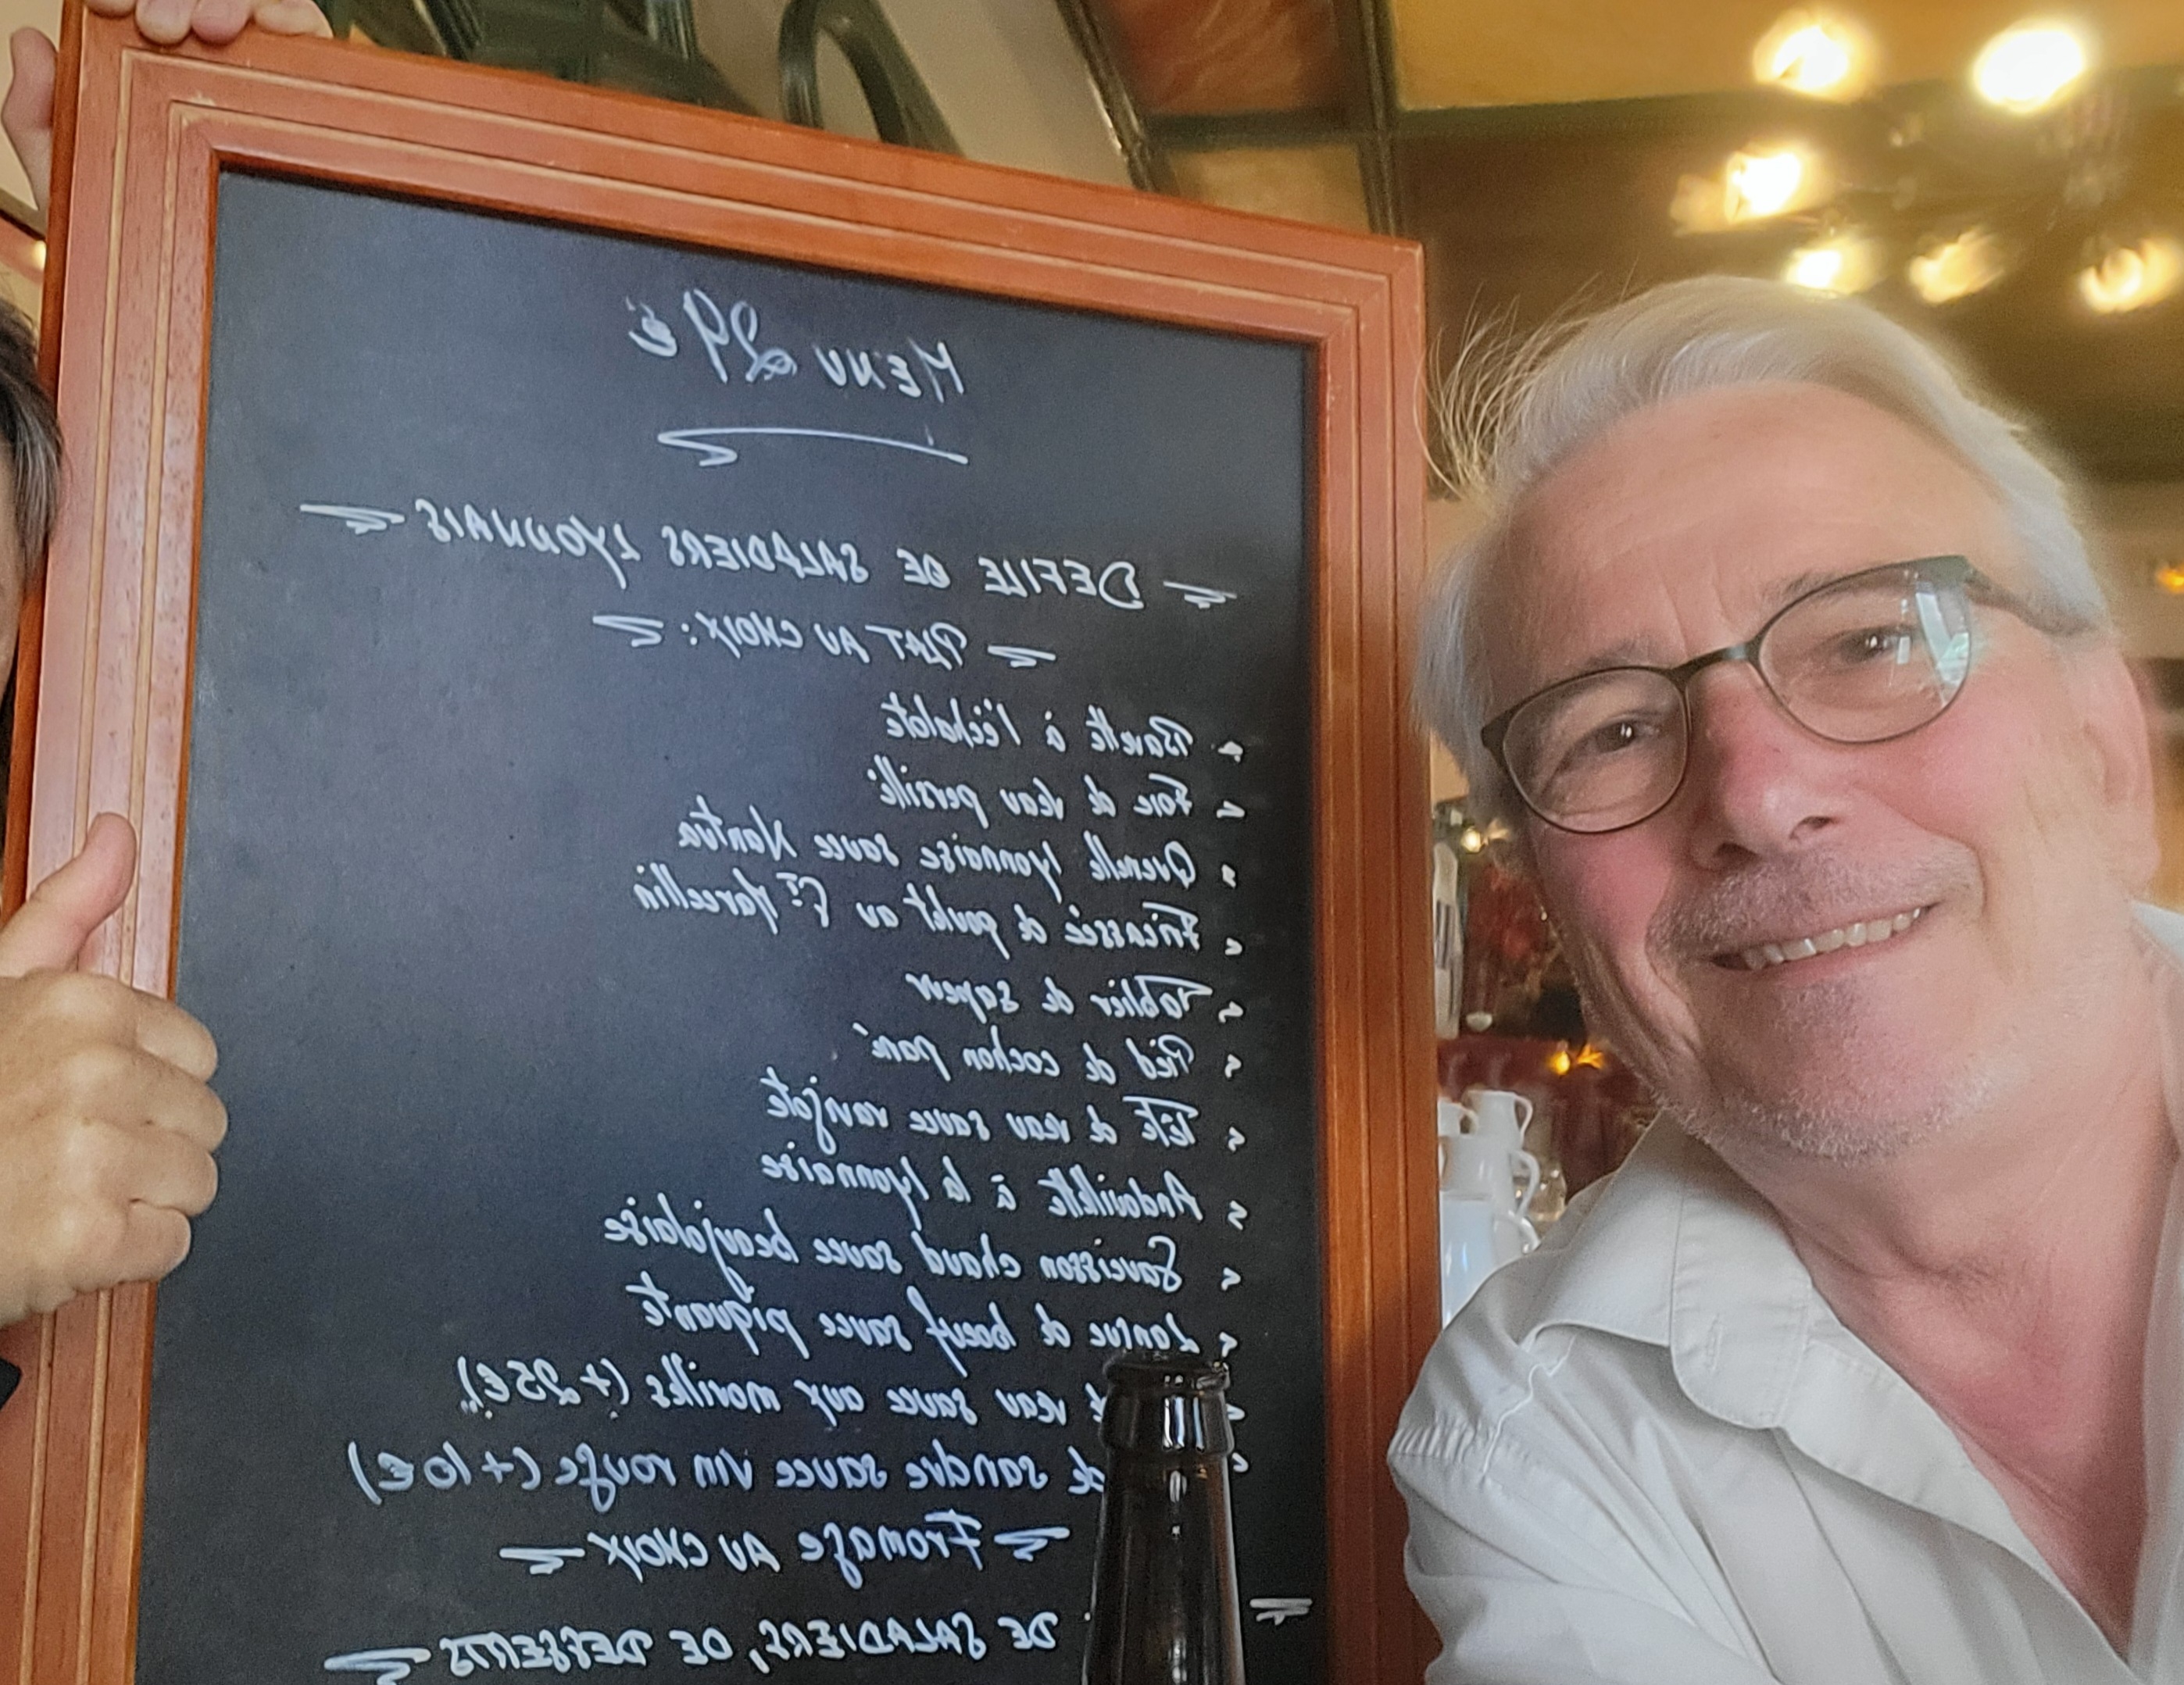 MENU 29 €
DEFILE DE SALADIERS LYONNAIS
PLAT AU CHOIX:
Bavette à l'échalote
Foie de veau persillé
Quenelle lyonnaise sauce Nantua
Fricassée de poulet au St Marcellin
Tablier de sapeur
Pied de cochon pané
Tête de veau sauce ravigote
Andouillette à la lyonnaise
Saucisson chaud sauce beaujolaise
Langue de boeuf sauce piquante
veau sauce aux morilles (+ 25€)
de sandre sauce vin rouge (+ 10€)
Fromage AU CHOIX
DE SALADIERS, DE DESSERTS